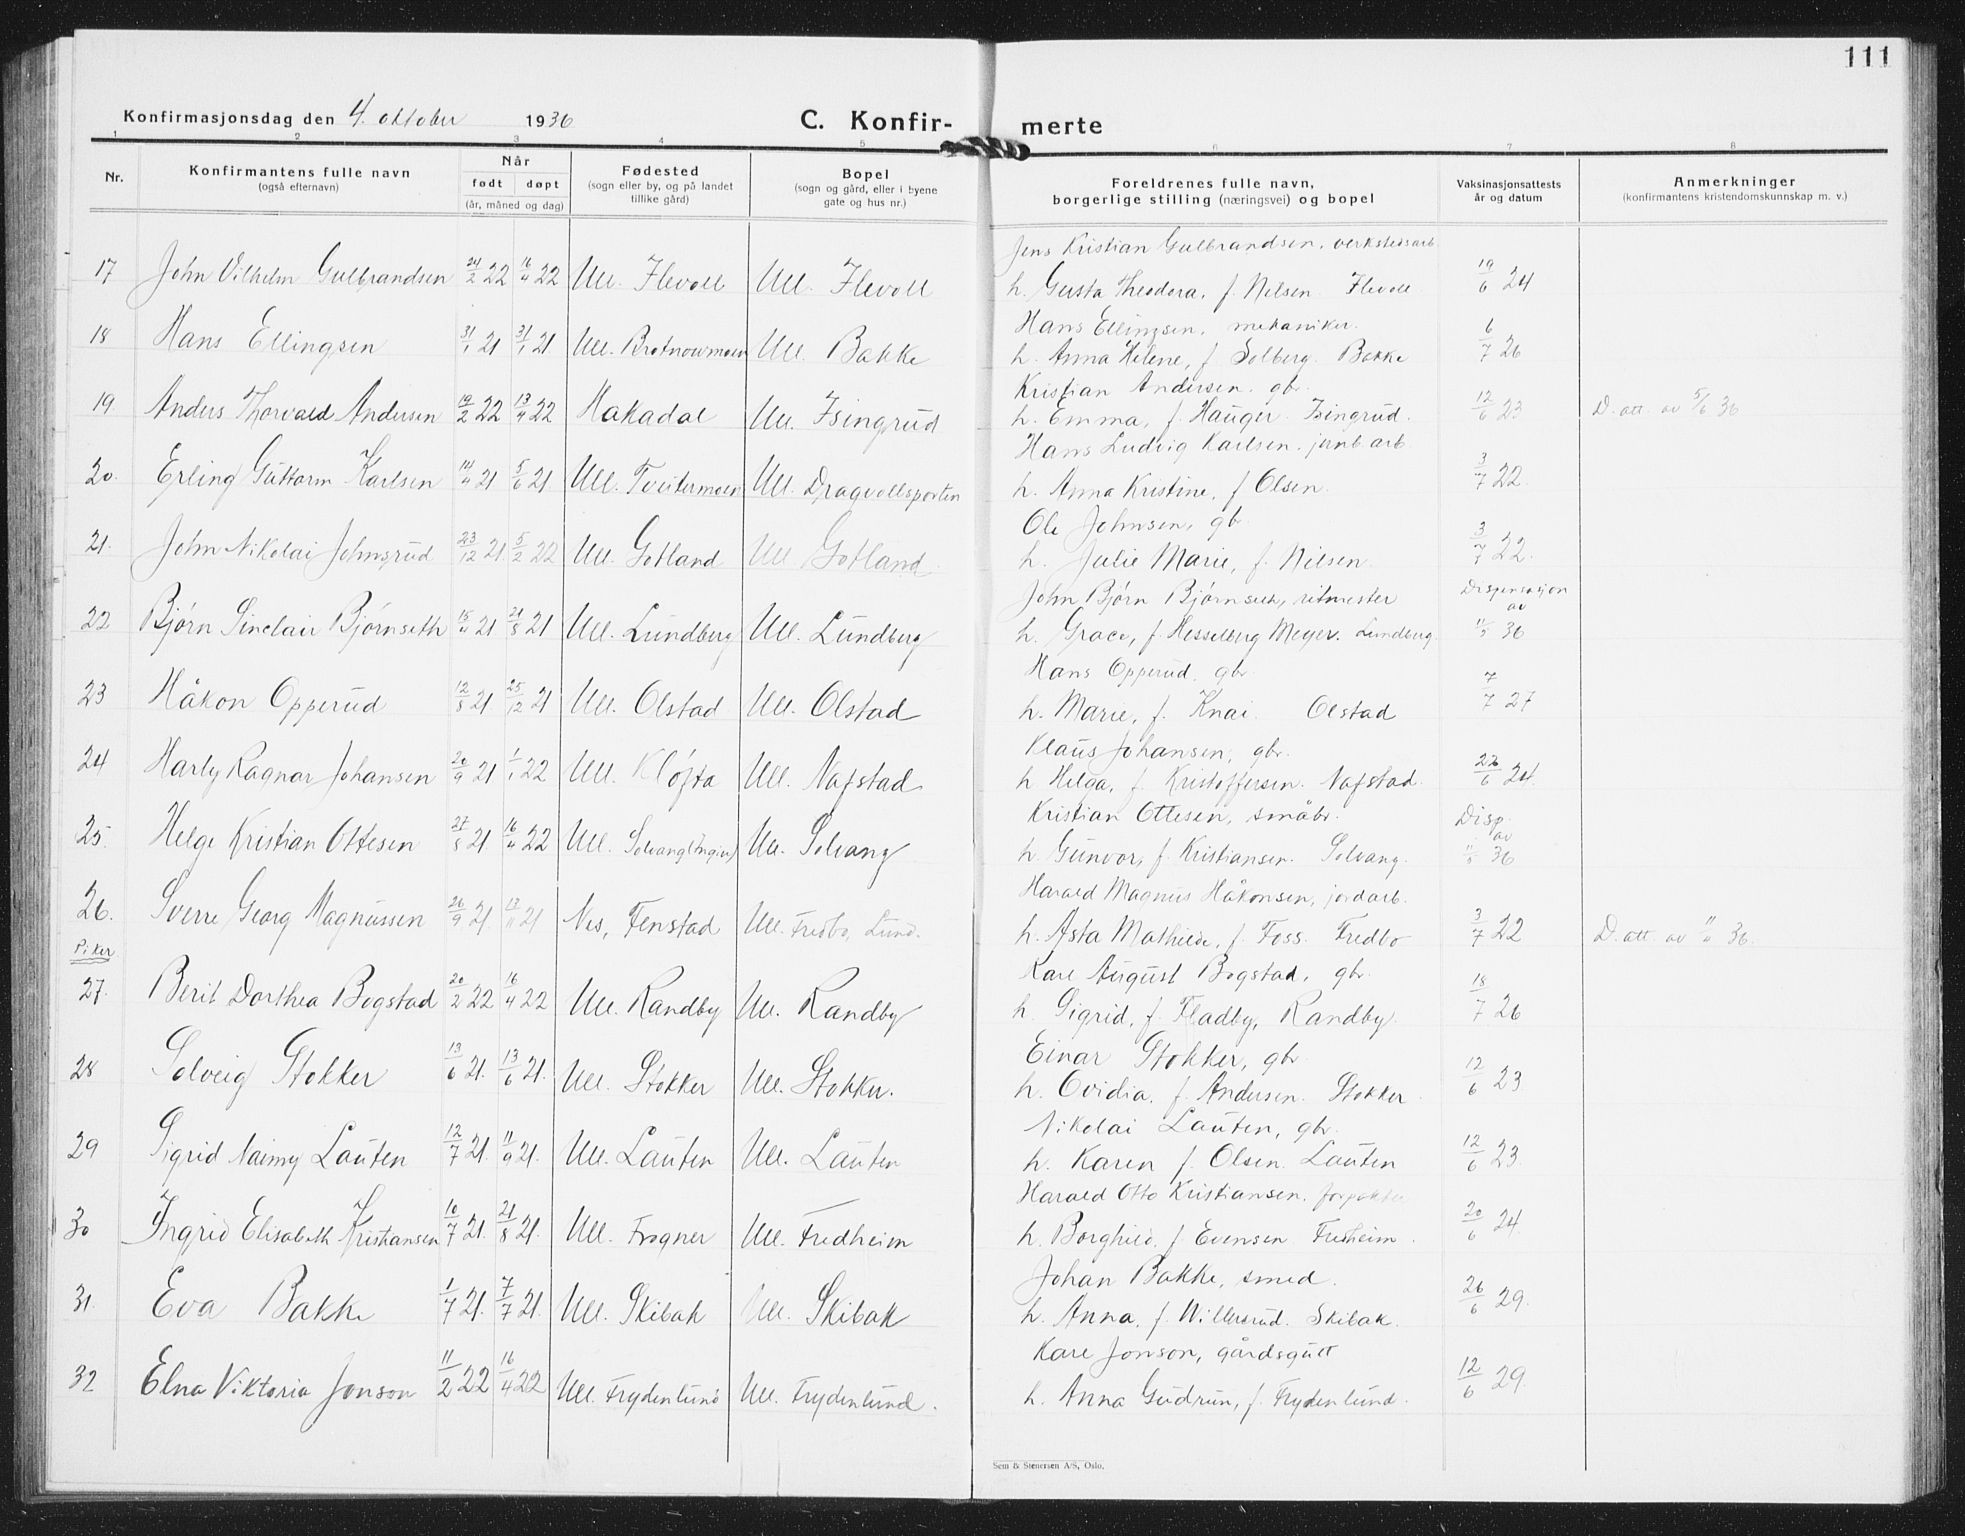 111
Konfirmasjonsdag den 4. oktober 1936 C. Konfir- merte
1 2 3 4 5 6 7 8
Nr. Konfirmantens fulle navn (også efternavn) Når født døpt (år, måned og dag) Fødested (sogn eller by, og på landet tillike gård) Bopel (sogn og gård, eller i byene gate og hus nr.) Foreldrenes fulle navn, borgerlige stilling (næringsvei) og bopel Vaksinasjonsattests år og datum Anmerkninger (konfirmantens kristendomskunnskap m. v.)
Jens Kristian Gulbrandsen, verkstedsarb.
17 John Vilhelm Gulbrandsen 24/2 22 16/4 22 Ull. Flevoll Ull. Flevoll h. Gusta Theodora, f. Nilsen Flevoll 19/6 24
Hans Ellingsen, mekaniker.
18 Hans Ellingsen 31/1 21 31/1 21 Ull. Ull. Bakke h. Anna Helene, f. Solberg. Bakke 6/7 26
Kristian Andersen. gbr.
19 Anders Thorvald Andersen 19/2 22 13/4 22 Hakadal Ull. Isingrud h. Emma, f. Hauger Isingrud. 12/6 23 D. att. av 5/6 36
Hans Ludvig Karlsen. jernb.arb.
20. Erling Guttorm Karlsen 14/4 21 5/6 21 Ull. Tveitermoen Ull. Dragvollsporten h. Anna Kristine, f Olsen. 3/7 22.
Ole Johnsen, gbr.
21. John Nikolai Johnsrud 23/12 21. 5/2 22 Ull. Gotland Ull Gotland. h. Julie Marie, f. Nilsen. 3/7 22.
John Bjørn Bjørnseth, ritmester Dispensasjon av
22 Bjørn Sinclair Bjørnseth 15/4 21 21/8 21 Ull. Lundberg Ull. Lundberg h. Grace, f Hesselberg Meyer. Lundberg. 11/5 36
Hans Opperud. gbr.
23 Håkon Opperud 12/8 21. 25/12 21 Ull. Olstad Ull. Olstad h. Marie, f. Knai. Olstad 7/7 27
Klaus Johansen, gbr.
24 Harly Ragnar Johansen 20/9 21 1/1 22 Ull. Kløfta Ull. Nafstad h Helga, f. Kristoffersen. Nafstad. 22/6 24.
Kristian Ottesen, småbr. Disp. av
25. Helge Kristian Ottesen 27/8 21. 16/4 22 Ull. Ull. Solvang h. Gunvor, f Kristiansen. Solvang. 11/5 36
Harald Magnus Håkonsen, jordarb.
26. Sverre Georg Magnussen 26/9 21. 13/11 21 Nes, Fenstad Ull. Fredbo, Lund. h. Asta Mathilde, f. Foss. Fredbo 3/7 22 D. att. av 36.
Piker
Kåre August Bogstad, gbr.
27. Berit Dorthea Bogstad 20/2 22 16/4 22 Ull. Randby Ull. Randby h. Sigrid, f. Fladby, Randby. 18/7 26
Einar Stokker, gbr
28 Solveig Stokker 13/6 21. 13/6 21. Ull. Stokker Ull. Stokker. h. Ovidia, f. Andersen. Stokker 12/6 23
Nikolai Lauten, gbr.
29 Sigrid Naimy Lauten 12/7 21. 11/9 21. Ull. Lauten Ull. Lauten h. Karen f. Olsen. Lauten 12/6 23
Harald Otto Kristiansen. forpakter
30 Ingrid Elisabeth Kristiansen 10/7 21. 21/8 21. Ull. Frogner Ull. Fredheim h. Borghild, f Evensen Fredheim. 20/6 24.
Johan Bakke, smed.
31. Eva Bakke 1/7 21. 7/7 21. Ull. Skibak Ull. Skibak h. Anna, f. Willersrud. Skibak. 26/6 29.
Kåre Jonson, gårdsgutt
32 Elna Viktoria Jonson 11/2 22 16/4 22 Ull. Frydenlund Ull. Frydenlund. h. Anna Gudrun, f. Frydenlund. 12/6 29
Sem & Stenersen A/S, Oslo.